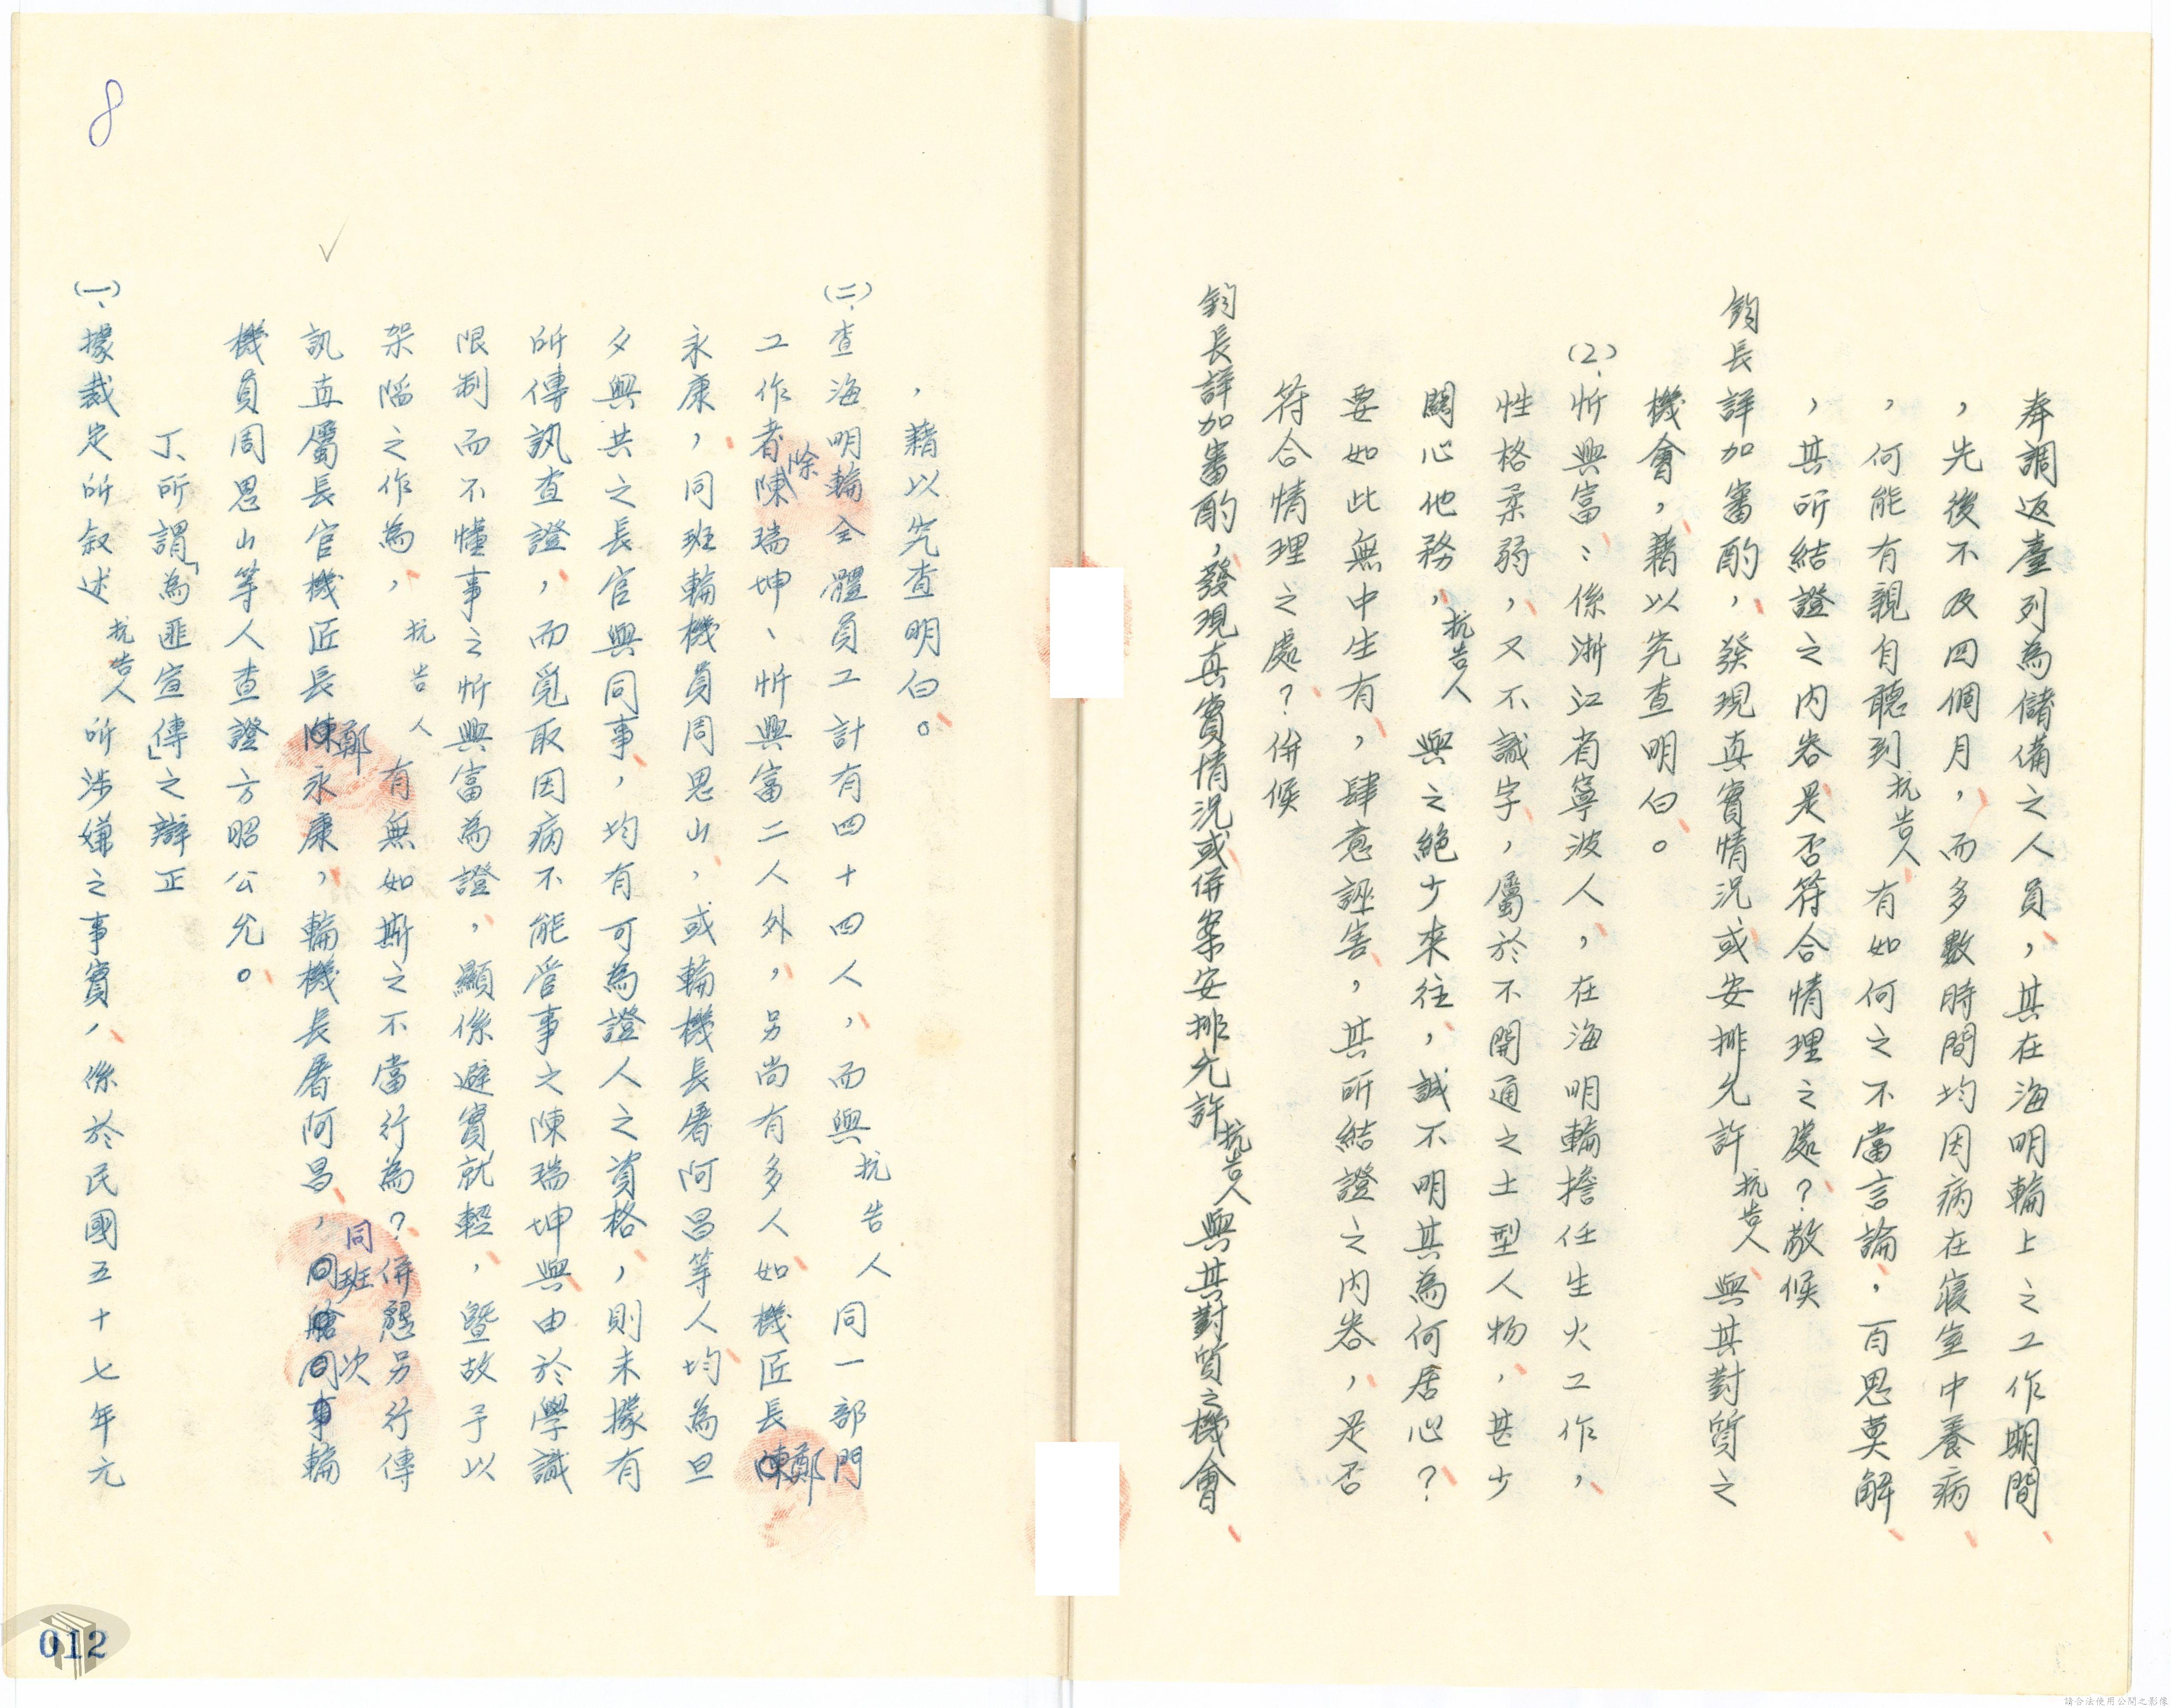 奉調返臺列為儲備之人員，其在海明輪上之工作期間
，先後不及四個月，而多數時間均因病在寢室中養病
，何能有親自聽到抗告人有如何之不當言論，百思莫解
，其所結證之內容是否符合情理之處？敬候
鈞長詳加審酌，發現真實情況或安排允許抗告人與其對質之
機會，藉以究查明白。
(2)、忻興富：係浙江省寧波人，在海明輪擔任生火工作，
性格柔弱，又不識字，屬於不開通之土型人物，甚少
關心他務，抗告人與之絕少來往，誠不明其為何居心？
要如此無中生有，肆意誣害，其所結證之內容，是否
符合情理之處？併候
鈞長詳加審酌，發現真實情況或併案安排允許抗告人與其對質之機會
，藉以究查明白。
(二)、查海明輪全體員工計有四十四人，而與抗告人同一部門
工作者除陳瑞坤、忻興富二人外，另尚有多人如機匠長鄭
永康，同班輪機員周思山，或輪機長屠阿昌等人均為旦
夕與共之長官與同事，均有可為證人之資格，則未據有
所傳訊查證，而覓取因病不能管事之陳瑞坤與由於學識
限制而不懂事之忻興富為證，顯係避實就輕，暨故予以
架陷之作為，抗告人有無如斯之不當行為？併懇另行傳
訊直屬長官機匠長鄭永康，輪機長屠阿昌，同班次輪
機員周思山等人查證方昭公允。
丁、所謂「為匪宣傳」之辯正
(一)、據裁定所敘述抗告人所涉嫌之事實，係於民國五十七年元
8
012
請合法使用公開之影像